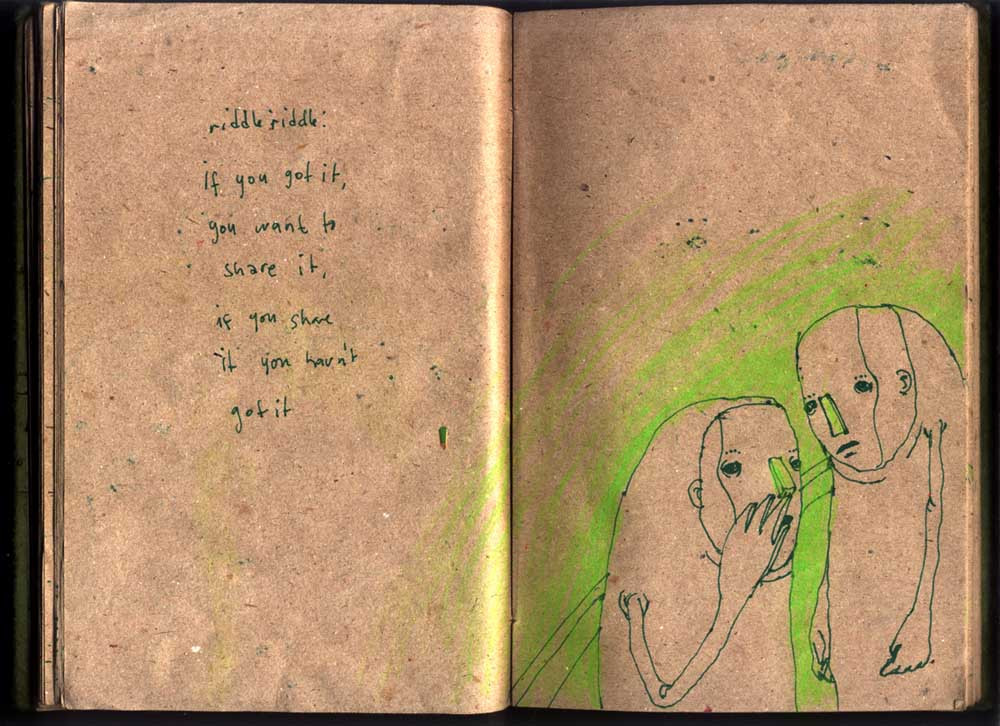 riddle riddle:
if you got it,
you want to
share it,
if you share
it you havn't
got it